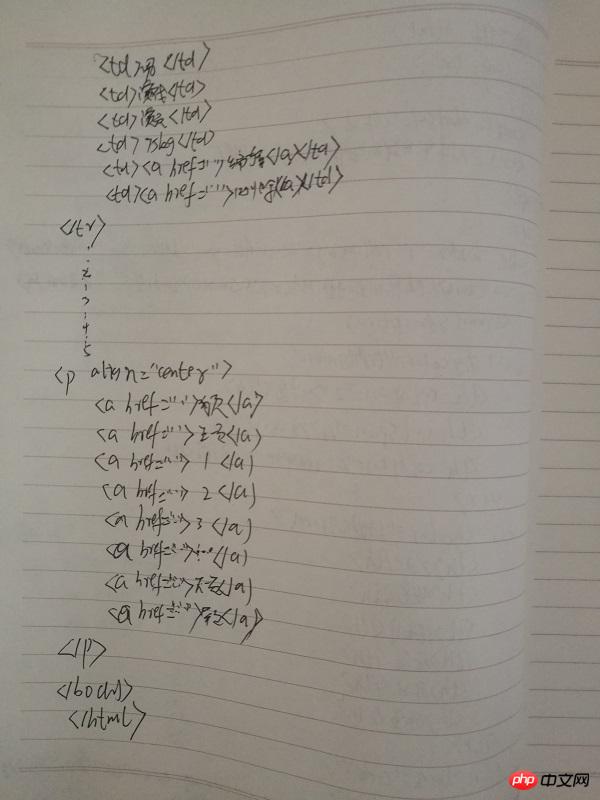 <td>男</td>
<td></td>
<td></td>
<td>75kg</td>
<td><a href=""></a></td>
<td><a href=""></a></td>
</tr>
2
3
4
5
<p align="center">
<a href="">首页</a>
<a href="">上页</a>
<a href="">1</a>
<a href="">2</a>
<a href="">3</a>
<a href="">...</a>
<a href=""></a>
<a href=""></a>
</p>
</body>
</html>
php 中文网